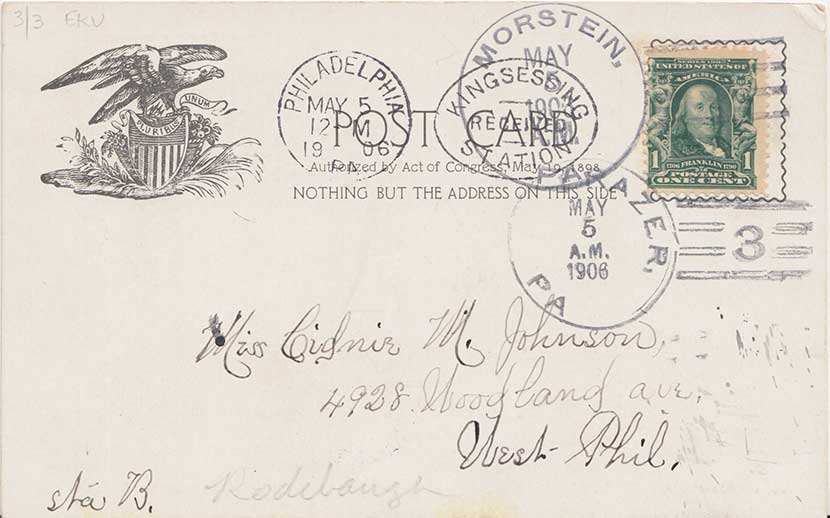 3/3 EKU
PLURIBUS UNUM
PHILADELPHIA
MAY 5
12 M
1906
PA
KINGSESSING
RECEIVED
STATION
MORSTEIN,
MAY
5
190
PA
POST CARD
Authorized by Act of Congress, May 19, 1898
NOTHING BUT THE ADDRESS ON THIS SIDE
SERIES 1902
UNITED STATES OF
AMERICA
1706 FRANKLIN 1790
1 POSTAGE 1
ONE CENT
AZER,
MAY
5
A.M.
1906
PA
3
Miss M. Johnson,
4928 Woodland ave.
West Phil.
sta B.
Rodebaugh